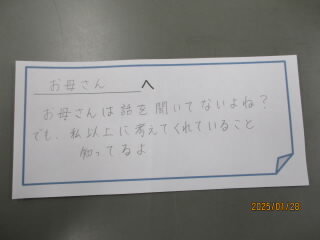 お母さん へ
お母さんは話を聞いてないよね?
でも、私以上に考えてくれていること
知ってるよ
2025/01/28